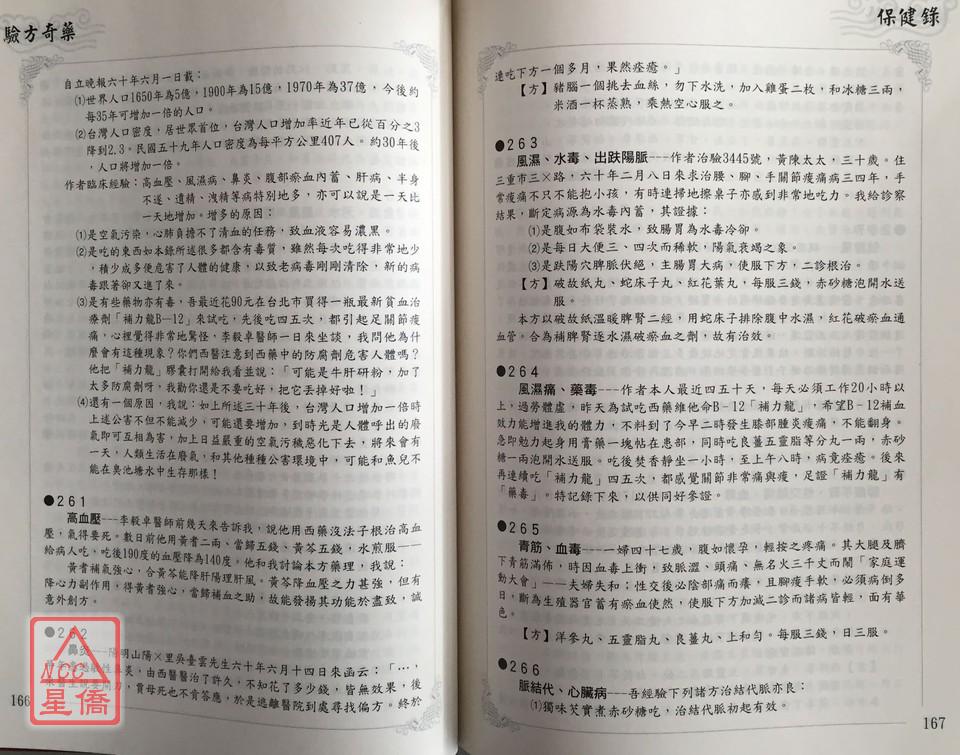 驗方奇藥
自立晚報六十年六月一日載：
⑴世界人口1650年為5億，1900年為15億，1970年為37億，今後約
每35年可增加一倍的人口。
⑵台灣人口密度，居世界首位，台灣人口增加率近年已從百分之3
降到2.3。民國五十九年人口密度為每平方公里407人。約30年後
，人口將增加一倍。
作者臨床經驗：高血壓、風濕病、鼻炎、腹部瘀血內蓄、肝病、半身
不遂、遺精、洩精等病特別地多，亦可以說是一天比
一天地增加。增多的原因：
⑴是空氣污染，心肺負擔不了清血的任務，致血液容易濃黑。
⑵是吃的東西如本錄所述很多都含有毒質，雖然每次吃得非常地少
，積少成多便危害了人體的健康，以致老病毒剛剛清除，新的病
毒跟著卻又進了來。
⑶是有些藥物亦有毒，吾最近花90元在台北市買得一瓶最新貧血治
療劑「補力龍B—12」來試吃，先後吃四五次，都引起足關節痠
痛，心裡覺得非常地驚怪，李毅卓醫師一日來坐談，我問他為什
麼會有這種現象？你們西醫注意到西藥中的防腐劑危害人體嗎？
他把「補力龍」膠囊打開給我看並說：「可能是牛肝研粉，加了
太多防腐劑呀，我勸你還是不要吃好，把它丟掉好啦！」
⑷還有一個原因，我說：如上所述三十年後，台灣人口增加一倍時
上述公害不但不能減少，可能還要增加，到時光是人體呼出的廢
氣即可互相為害，加上日益嚴重的空氣污穢惡化下去，將來會有
一天，人類生活在廢氣，和其他種種公害環境中，可能和魚兒不
能在臭池塘水中生存那樣！
●261
高血壓---李毅卓醫師前幾天來告訴我，說他用西藥沒法子根治高血
壓，氣得要死。數日前他用黃耆二兩、當歸五錢、黃芩五錢，水煎服——
給病人吃，吃後190度的血壓降為140度。他和我討論本方藥理，我說：
黃耆補氣強心，合黃芩能降肝陽理肝風。黃芩降血壓之力甚強，但有
降心力副作用，得黃耆強心，當歸補血之助，故能發揚其功能於盡致，誠
意外創方。
●262
鼻炎---陽明山陽×里吳臺雲先生六十年六月十四日來函云：「…，
性鼻炎，由西醫醫治了許久，不知花了多少錢，皆無效果，後
刀，賣母死也不肯答應，於是逃離醫院到處尋找偏方。終於
166
NCC
星僑
保健錄
連吃下方一個多月，果然痊癒。」
【方】豬腦一個挑去血絲，勿下水洗，加入雞蛋二枚，和冰糖三兩，
米酒一杯蒸熟，乘熱空心服之。
●263
風濕、水毒、出趺陽脈---作者治驗3445號，黃陳太太，三十歲。住
三重市三×路，六十年二月八日來求治腰、腳、手關節痠痛病三四年，手
常痠痛不只不能抱小孩，有時連掃地擦桌子亦感到非常地吃力。我給診察
結果，斷定病源為水毒內蓄，其證據：
⑴是腹如布袋裝水，致腸胃為水毒冷卻。
⑵是每日大便三、四次而稀軟，陽氣衰竭之象。
⑶是趺陽穴脾脈伏絕，主腸胃大病，使服下方，二診根治。
【方】破故紙丸、蛇床子丸、紅花葉丸，每服三錢，赤砂糖泡開水送
服。
本方以破故紙溫暖脾腎二經，用蛇床子排除腹中水濕，紅花破瘀血通
血管。合為補脾腎逐水濕破瘀血之劑，故有治效。
●264
風濕痛、藥毒---作者本人最近四五十天，每天必須工作20小時以
上，過勞體虛，昨天為試吃西藥維他命B‐12「補力龍」，希望B‐12補血
效力能增進我的體力，不料到了今早二時發生膝部腫炎痠痛，不能翻身。
急即勉力起身用膏藥一塊帖在患部，同時吃良薑五靈脂等分丸一兩，赤砂
糖一兩泡開水送服。吃後焚香靜坐一小時，至上午八時，病竟痊癒。後來
再連續吃「補力龍」四五次，都感覺關節非常痛與痠，足證「補力龍」有
「藥毒」。特記錄下來，以供同好參證。
●265
青筋、血毒---一婦四十七歲，腹如懷孕，輕按之疼痛。其大腿及臍
下青筋滿佈，時因血毒上衝，致脈澀、頭痛、無名火三千丈而鬧「家庭運
動大會」——夫婦失和；性交後必陰部痛而癢，且腳痠手軟，必須病倒多
日，斷為生殖器官蓄有瘀血使然，使服下方加減二診而諸病皆輕，面有華
色。
【方】洋參丸、五靈脂丸、良薑丸、上和勻。每服三錢，日三服。
●266
脈結代、心臟病---吾經驗下列諸方治結代脈亦良：
⑴獨味芡實煮赤砂糖吃，治結代脈初起有效。
167